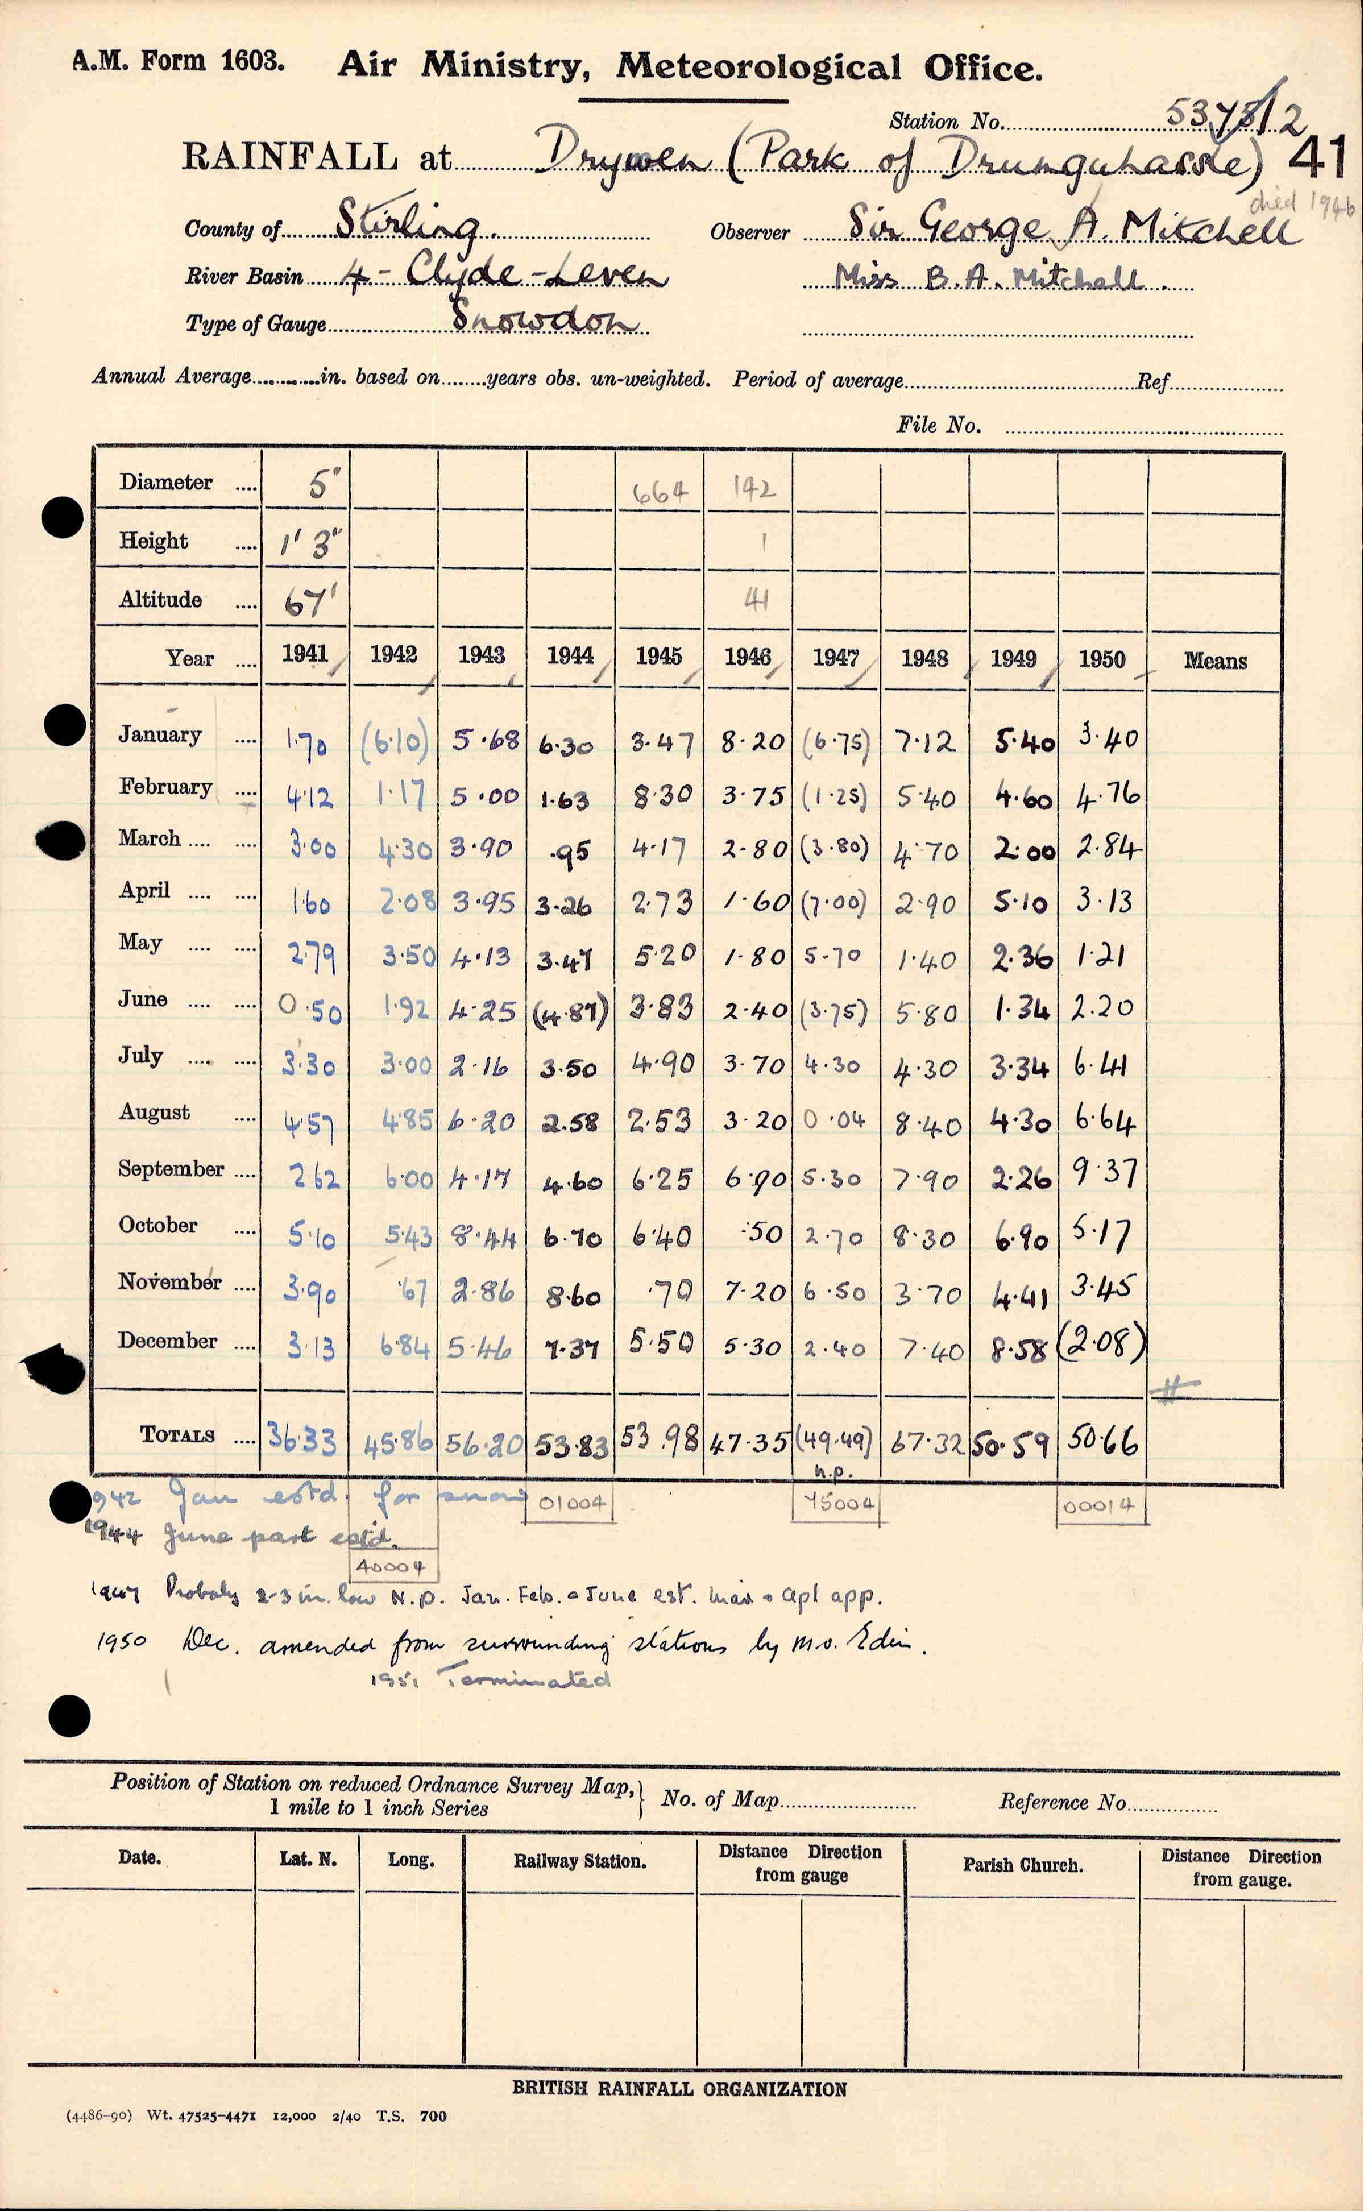 A.M. Form 1603. Air Ministry, Meteorological Office.
Station No.
RAINFALL at Drymen (Park of Drumquhassle) 41
died 1946
County of Stirling. Observer Sir George A. Mitchell
River Basin 4 - Clyde - Leven Miss B.A. Mitchell.
Type of Gauge Snowdon
Annual Average in. based on years obs. un-weighted. Period of average Ref
File No.
Diameter .... 5" 664 142
Height .... 1' 3" 1
Altitude .... 67' 41
Year .... 1941 1942 1943 1944 1945 1946 1947 1948 1949 1950 Means
January .... 1.70 (6.10) 5.68 6.30 3.47 8.20 (6.75) 7.12 5.40 3.40
February .... 4.12 1.17 5.00 1.63 8.30 3.75 (1.25) 5.40 4.60 4.76
March .... .... 3.00 4.30 3.90 .95 4.17 2.80 (3.80) 4.70 2.00 2.84
April .... .... 1.60 2.08 3.95 3.26 2.73 1.60 (7.00) 2.90 5.10 3.13
May .... .... 2.79 3.50 4.13 3.47 5.20 1.80 5.70 1.40 2.36 1.21
June .... .... 0.50 1.92 4.25 (4.87) 3.83 2.40 (3.75) 5.80 1.34 2.20
July .... .... 3.30 3.00 2.16 3.50 4.90 3.70 4.30 4.30 3.34 6.41
August .... 4.57 4.85 6.20 2.58 2.53 3.20 0.04 8.40 4.30 6.64
September .... 2.62 6.00 4.17 4.60 6.25 6.90 5.30 7.90 2.26 9.37
October .... 5.10 5.43 8.44 6.70 6.40 .50 2.70 8.30 6.90 5.17
November .... 3.90 .67 2.86 8.60 .70 7.20 6.50 3.70 4.41 3.45
December .... 3.13 6.84 5.46 7.37 5.50 5.30 2.40 7.40 8.58 (2.08)
TOTALS .... 36.33 45.86 56.20 53.83 53.98 47.35 (49.49) 67.32 50.59 50.66
n.p.
1942 Jan estd. for snow 01004 45004 00014
1944 June part est'd.
40004
1947 Probably 2-3 in. low N.P. Jan. Feb. & June est. Mar & Apl app.
1950 Dec. amended from surrounding stations by M.O. Edin.
1951 Terminated
Position of Station on reduced Ordnance Survey Map, 1 mile to 1 inch Series } No. of Map Reference No
Date. Lat. N. Long. Railway Station. Distance Direction from gauge Parish Church. Distance Direction from gauge.
BRITISH RAINFALL ORGANIZATION
(4486-90) Wt. 47525-4471 12,000 2/40 T.S. 700